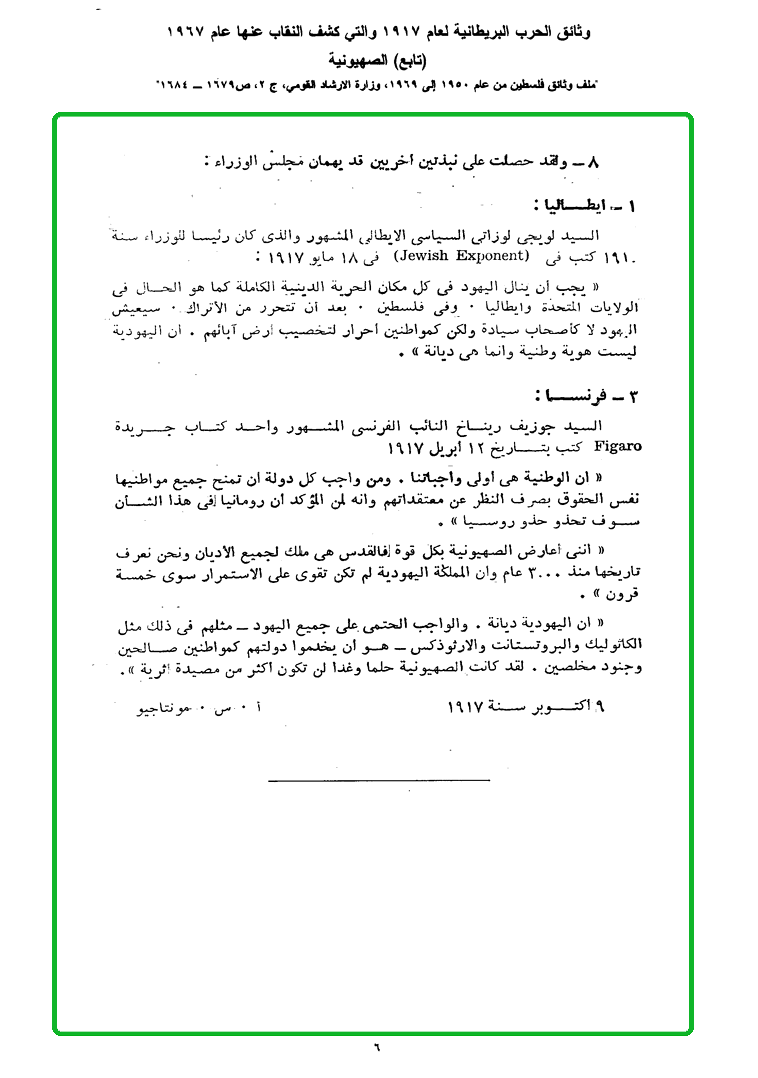 وثائق الحرب البريطانية لعام ١٩١٧ والتي كشف النقاب عنها عام ١٩٦٧
(تابع) الصهيونية
"ملف وثائق فلسطين من عام ١٩٥٠ إلى ١٩٦٩، وزارة الارشاد القومي، ج ٢، ص١٦٧٩ ــ ١٦٨٤"
٨ ــ ولقد حصلت على نبذتين أخريين قد يهمان مجلس الوزراء :
١ ــ ايطـــاليا :
السيد لويجى لوزاتى السياسى الايطالى المشهور والذى كان رئيسا للوزراء سنة
١٩١٠ كتب فى (Jewish Exponent) فى ١٨ مايو ١٩١٧ :
« يجب أن ينال اليهود فى كل مكان الحرية الدينية الكاملة كما هو الحال فى
الولايات المتحدة وايطاليا ٠ وفى فلسطين ٠ بعد أن تتحرر من الأتراك ٠ سيعيش
اليهود لا كأصحاب سيادة ولكن كمواطنين أحرار لتخصيب أرض آبائهم . أن اليهودية
ليست هوية وطنية وانما هى ديانة » .
٣ ــ فرنســـا :
السيد جوزيف ريناخ النائب الفرنسى المشـهور واحـد كتـاب جـــريدة
Figaro كتب بتـــاريخ ١٢ أبريل ١٩١٧
« ان الوطنية هى أولى واجباتنا . ومن واجب كل دولة ان تمنح جميع مواطنيها
نفس الحقوق بصرف النظر عن معتقداتهم وانه لمن المؤكد أن رومانيا فى هذا الشـأن
سـوف تحذو حذو روسـيا » .
« اننى أعارض الصهيونية بكل قوة فالقدس هى ملك لجميع الأديان ونحن نعرف
تاريخها منذ ٣٠٠٠ عام وان المملكة اليهودية لم تكن تقوى على الاستمرار سوى خمسـة
قرون » .
« ان اليهودية ديانة . والواجب الحتمى على جميع اليهود ــ مثلهم فى ذلك مثل
الكاثوليك والبروتستانت والارثوذكس ــ هـو أن يخدموا دولتهم كمواطنين صـالحين
وجنود مخلصين . لقد كانت الصهيونية حلما وغدا لن تكون أكثر من مصيدة أثرية » .
٩ أكتـــوبر سـنة ١٩١٧
أ ٠ س ٠ مونتاجيو
٦